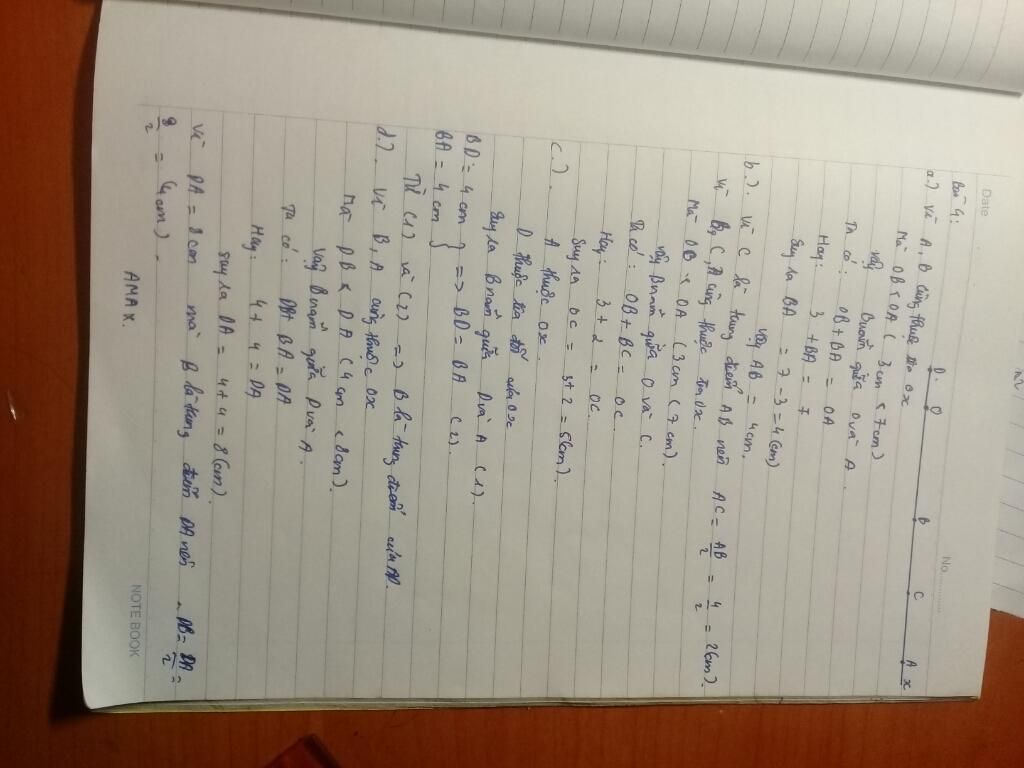 Date
No.
Bài 4:
D. O B C A x
a.) Vì A, B cùng thuộc tia Ox
Mà OB < OA ( 3cm < 7cm)
Vậy B nằm giữa O và A.
Ta có: OB + BA = OA
Hay: 3 + BA = 7
Suy ra BA = 7 - 3 = 4 (cm)
Vậy AB = 4cm.
b.). Vì C là trung điểm AB nên AC = AB/2 = 4/2 = 2(cm).
Vì B, C, A cùng thuộc tia Ox.
Mà OB < OA (3cm < 7cm).
Vậy B nằm giữa O và C.
Ta có: OB + BC = OC.
Hay: 3 + 2 = OC.
Suy ra OC = 3 + 2 = 5(cm).
c.). A thuộc Ox.
D thuộc tia đối của Ox
Suy ra B nằm giữa D và A (1).
BD = 4cm
BA = 4cm } => BD = BA (2).
Từ (1) và (2) => B là trung điểm của AD.
d.). Vì B, A cùng thuộc Ox
Mà DB < DA (4cm < 8cm).
Vậy B nằm giữa D và A.
Ta có: DB + BA = DA
Hay: 4 + 4 = DA
Suy ra DA = 4 + 4 = 8(cm).
Vì DA = 8cm mà B là trung điểm DA nên DB = DA/2 =
8/2 = 4(cm).
AMAX.
NOTE BOOK